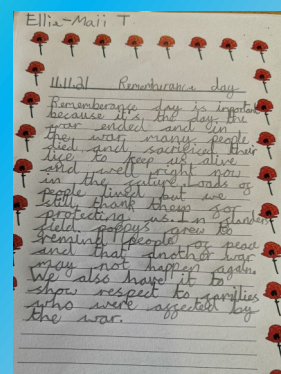 Ellia-Maii T
11.11.21 Rememburance day
Rememberance day is important
because it's the day the
war ended and in
the war many people
died and sacrificed their
life to keep us alive
and well right now
in the future. Loads of
people lived but we
still thank them for
protecting us. In flanders
field poppys grew to
remind people of peac
and that another war
may not happen again.
We also have it to
show respect to families
who were affected by
the war.